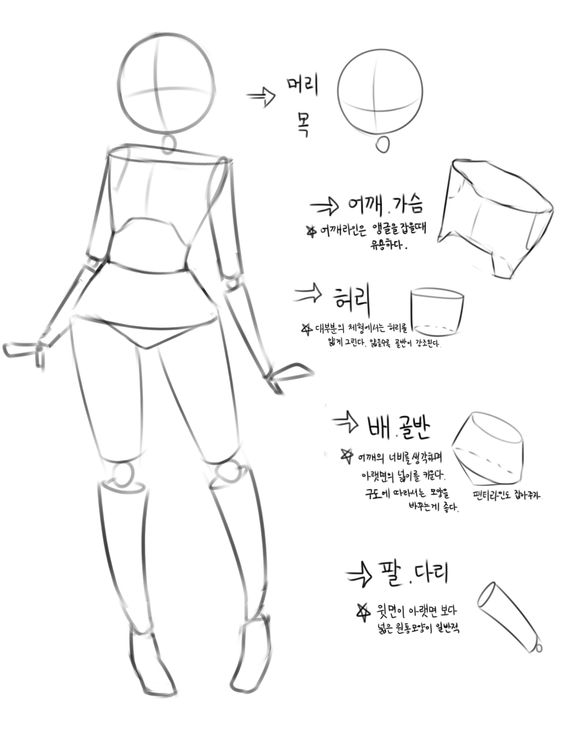 머리
목
어깨.가슴
어깨라인은 앵글을 잡을때
유용하다.
허리
대부분의 체형에서는 허리를
얇게 그린다. 얇을수록 골반이 강조된다
배.골반
어깨의 너비를 생각하며
아랫면의 넓이를 키운다.
구도에 따라서는 모양을
바꾸는게 좋다.
팬티라인도 잡아주자
팔.다리
윗면이 아랫면 보다
넓은 원통모양이 일반적